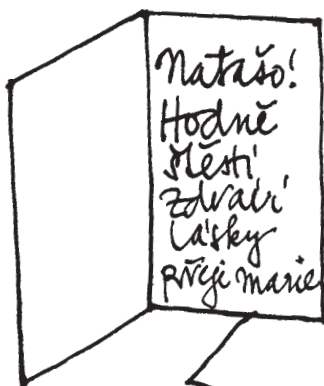 Natašo!
Hodně
štěstí
zdraví
lásky
přeji Marie